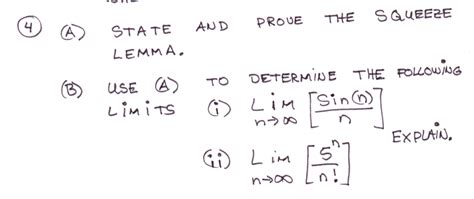 ④ (A) STATE AND PROVE THE SQUEEZE
LEMMA.
(B) USE (A) TO DETERMINE THE FOLLOWING
LIMITS (i) Lim n→∞ [Sin(n)/n]
EXPLAIN.
(ii) Lim n→∞ [5^n/n!]